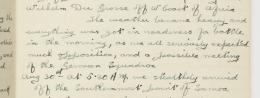 Wilhelm Der Grosse off W Coast of Africa
The weather became heavy and
everything was got in readiness for battle
in the morning, as we all seriously expected
much opposition, and a possible meeting
of the German Squadron
Aug 30th at 5.30 A.M. we stealthily arrived
off the Southernmost point of Samoa